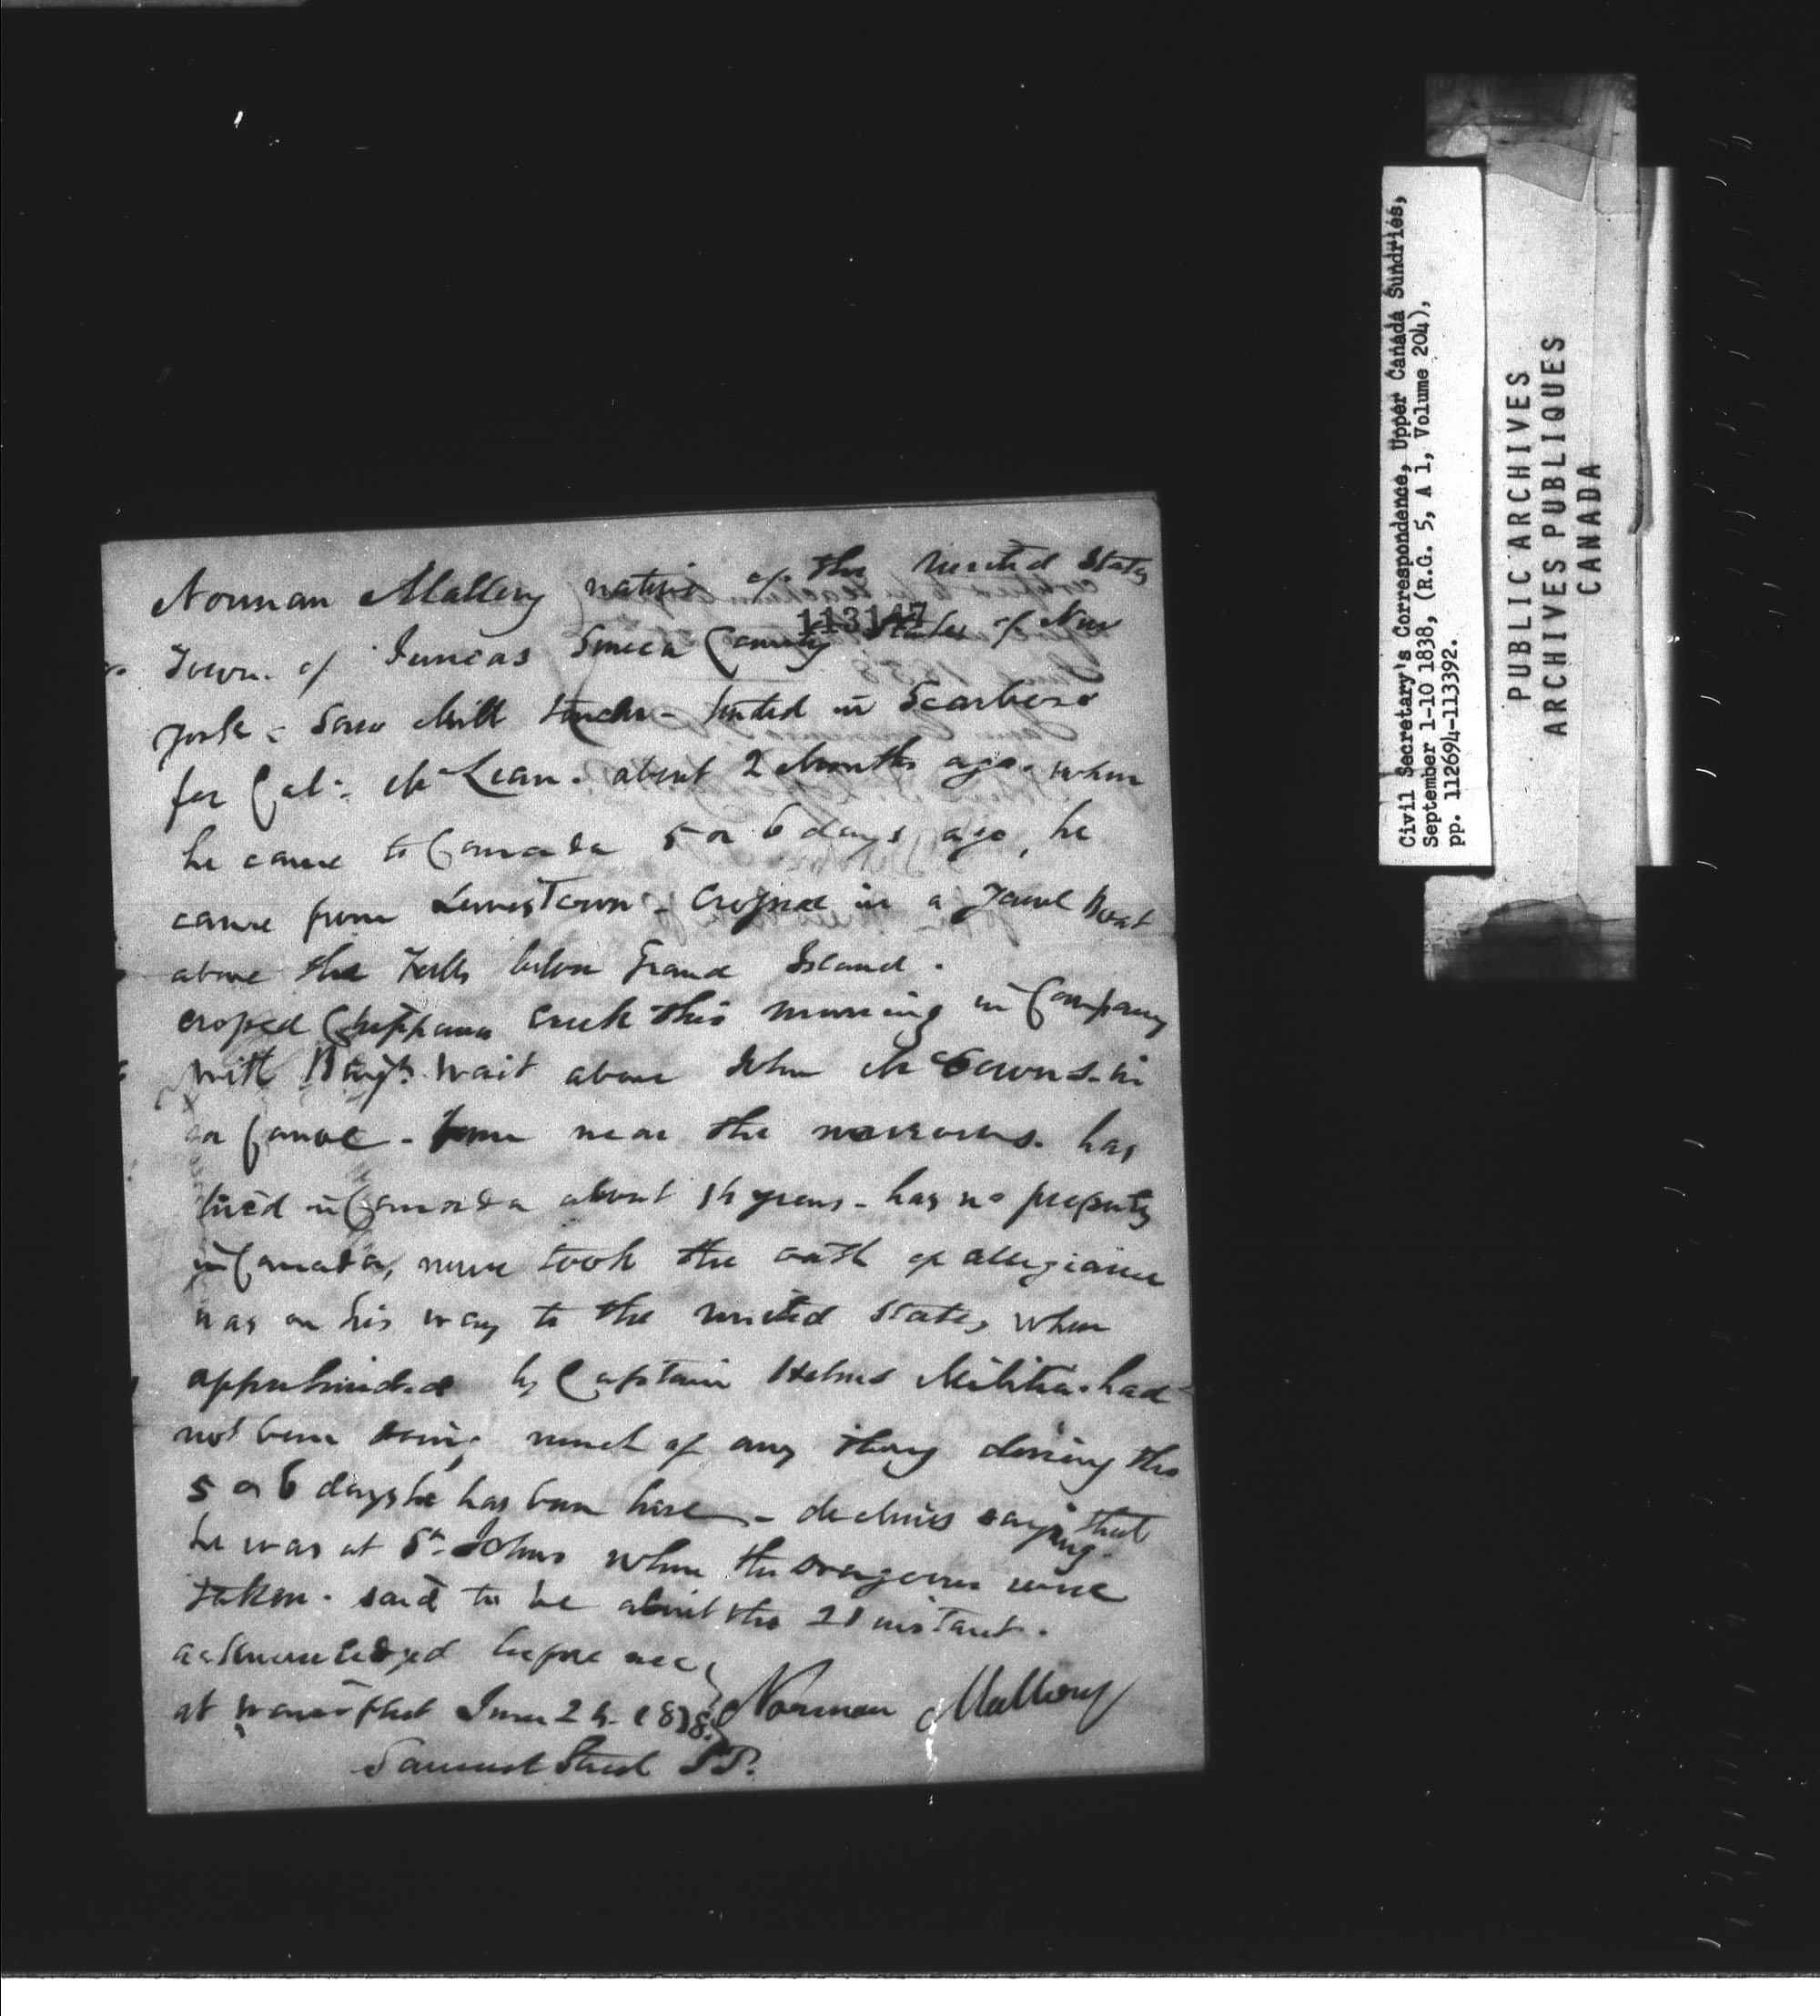 Norman Mallery native of the United States
113147
Town of Junias Sineca County State of New
york - Saw Mill tender - tended in Scarboro
for Col. McLean. about 2 Months ago. when
he came to Canada 5 or 6 days ago, he
came from Lewistown - Crossed in a yawl Boat
above the Falls below Grand Island.
crossed Chippawa Creek this morning in Company
with Benjn. Wait above John McGowns - in
a Canoe - near the narrows. has
lived in Canada about 14 years - has no property
in Canada, never took the oath of allegiance
was on his way to the united States when
apprehended by Captain Helms Militia. had
not been doing much of any thing during the
5 or 6 days he has been here - declines saying that
he was at St. Johns when the were
taken. said to be about the 21 instant.
acknowledged before me
at June 24. 1838. Norman Mallory
Samuel Street J.P.
Civil Secretary's Correspondence, Upper Canada Sundries,
September 1-10 1838, (R.G. 5, A 1, Volume 204),
pp. 112694-113392.
PUBLIC ARCHIVES
ARCHIVES PUBLIQUES
CANADA